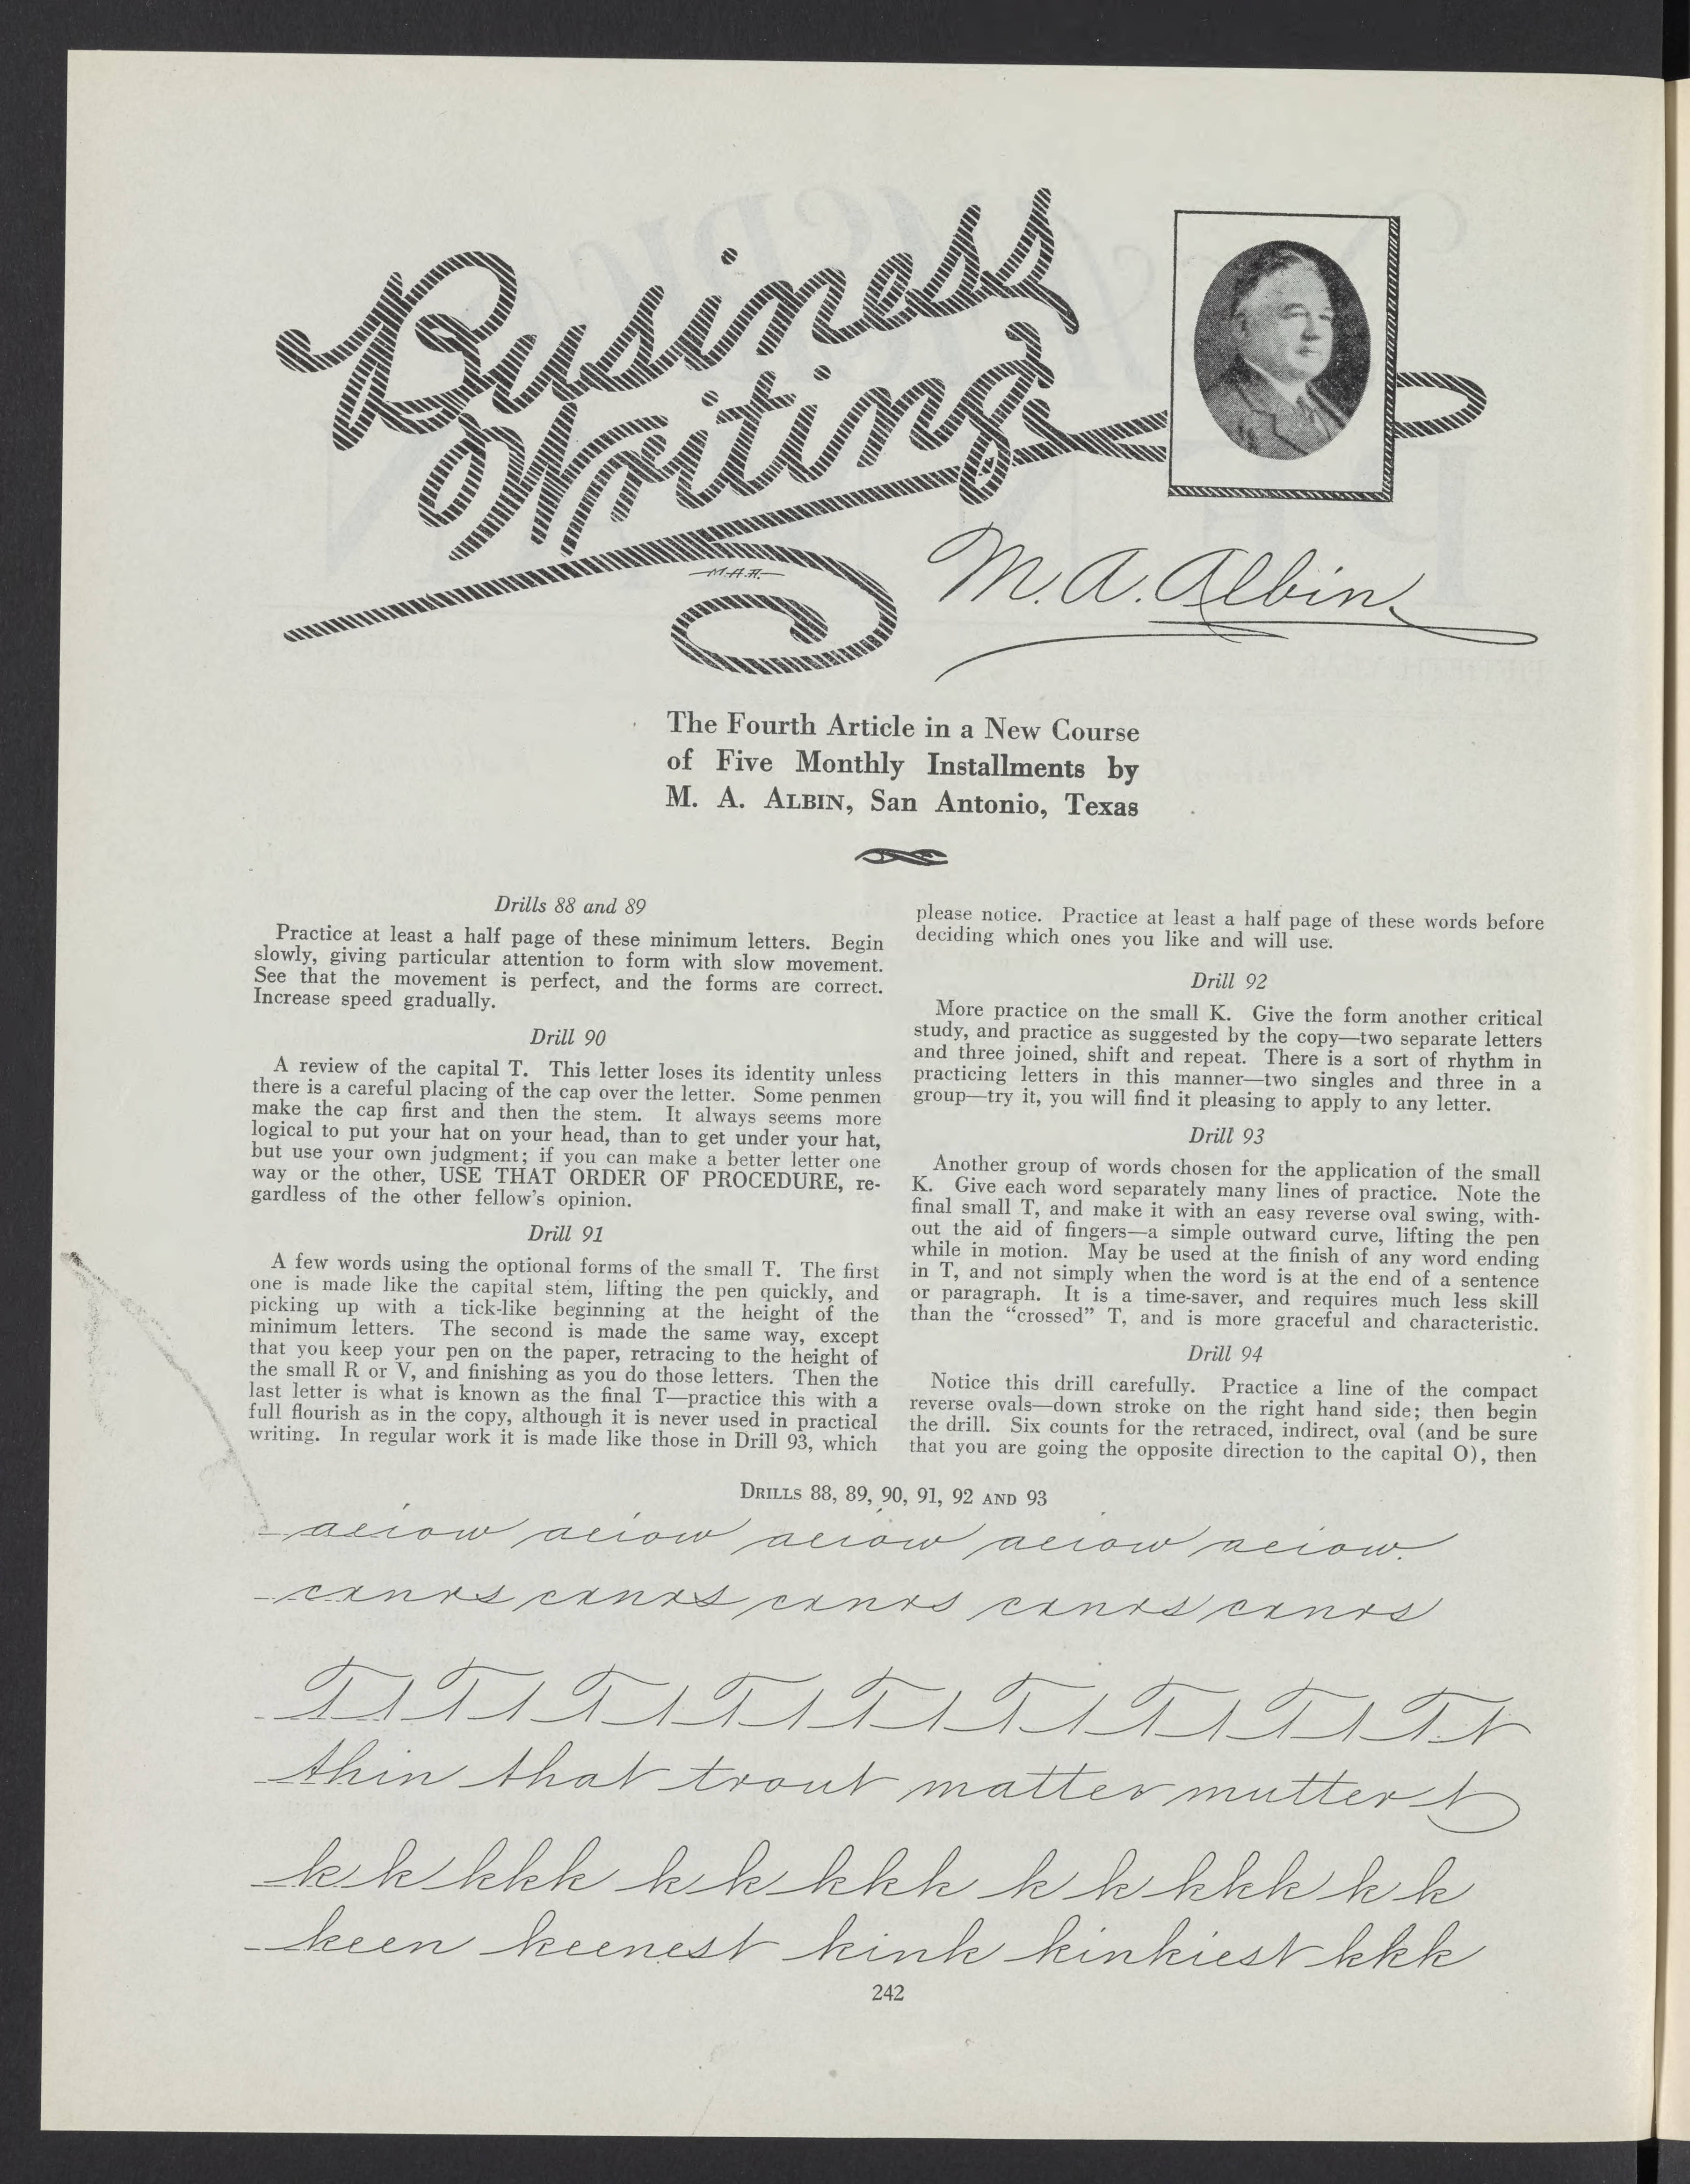 Business
Writing
M.A.A.
M. A. Albin
The Fourth Article in a New Course
of Five Monthly Installments by
M. A. ALBIN, San Antonio, Texas
Drills 88 and 89
Practice at least a half page of these minimum letters. Begin
slowly, giving particular attention to form with slow movement.
See that the movement is perfect, and the forms are correct.
Increase speed gradually.
Drill 90
A review of the capital T. This letter loses its identity unless
there is a careful placing of the cap over the letter. Some penmen
make the cap first and then the stem. It always seems more
logical to put your hat on your head, than to get under your hat,
but use your own judgment; if you can make a better letter one
way or the other, USE THAT ORDER OF PROCEDURE, re-
gardless of the other fellow's opinion.
Drill 91
A few words using the optional forms of the small T. The first
one is made like the capital stem, lifting the pen quickly, and
picking up with a tick-like beginning at the height of the
minimum letters. The second is made the same way, except
that you keep your pen on the paper, retracing to the height of
the small R or V, and finishing as you do those letters. Then the
last letter is what is known as the final T—practice this with a
full flourish as in the copy, although it is never used in practical
writing. In regular work it is made like those in Drill 93, which
please notice. Practice at least a half page of these words before
deciding which ones you like and will use.
Drill 92
More practice on the small K. Give the form another critical
study, and practice as suggested by the copy—two separate letters
and three joined, shift and repeat. There is a sort of rhythm in
practicing letters in this manner—two singles and three in a
group—try it, you will find it pleasing to apply to any letter.
Drill 93
Another group of words chosen for the application of the small
K. Give each word separately many lines of practice. Note the
final small T, and make it with an easy reverse oval swing, with-
out the aid of fingers—a simple outward curve, lifting the pen
while in motion. May be used at the finish of any word ending
in T, and not simply when the word is at the end of a sentence
or paragraph. It is a time-saver, and requires much less skill
than the "crossed" T, and is more graceful and characteristic.
Drill 94
Notice this drill carefully. Practice a line of the compact
reverse ovals—down stroke on the right hand side; then begin
the drill. Six counts for the retraced, indirect, oval (and be sure
that you are going the opposite direction to the capital O), then
DRILLS 88, 89, 90, 91, 92 AND 93
aeiow aeiow aeiow aeiow aeiow.
cxnrs cxnrs cxnrs cxnrs cxnrs
T t T t T t T t T t T t T t T t T t
thin that trout matter mutter t
k k kkk k k kkk k k kkk k k
keen keenest kink kinkiest kkk
242